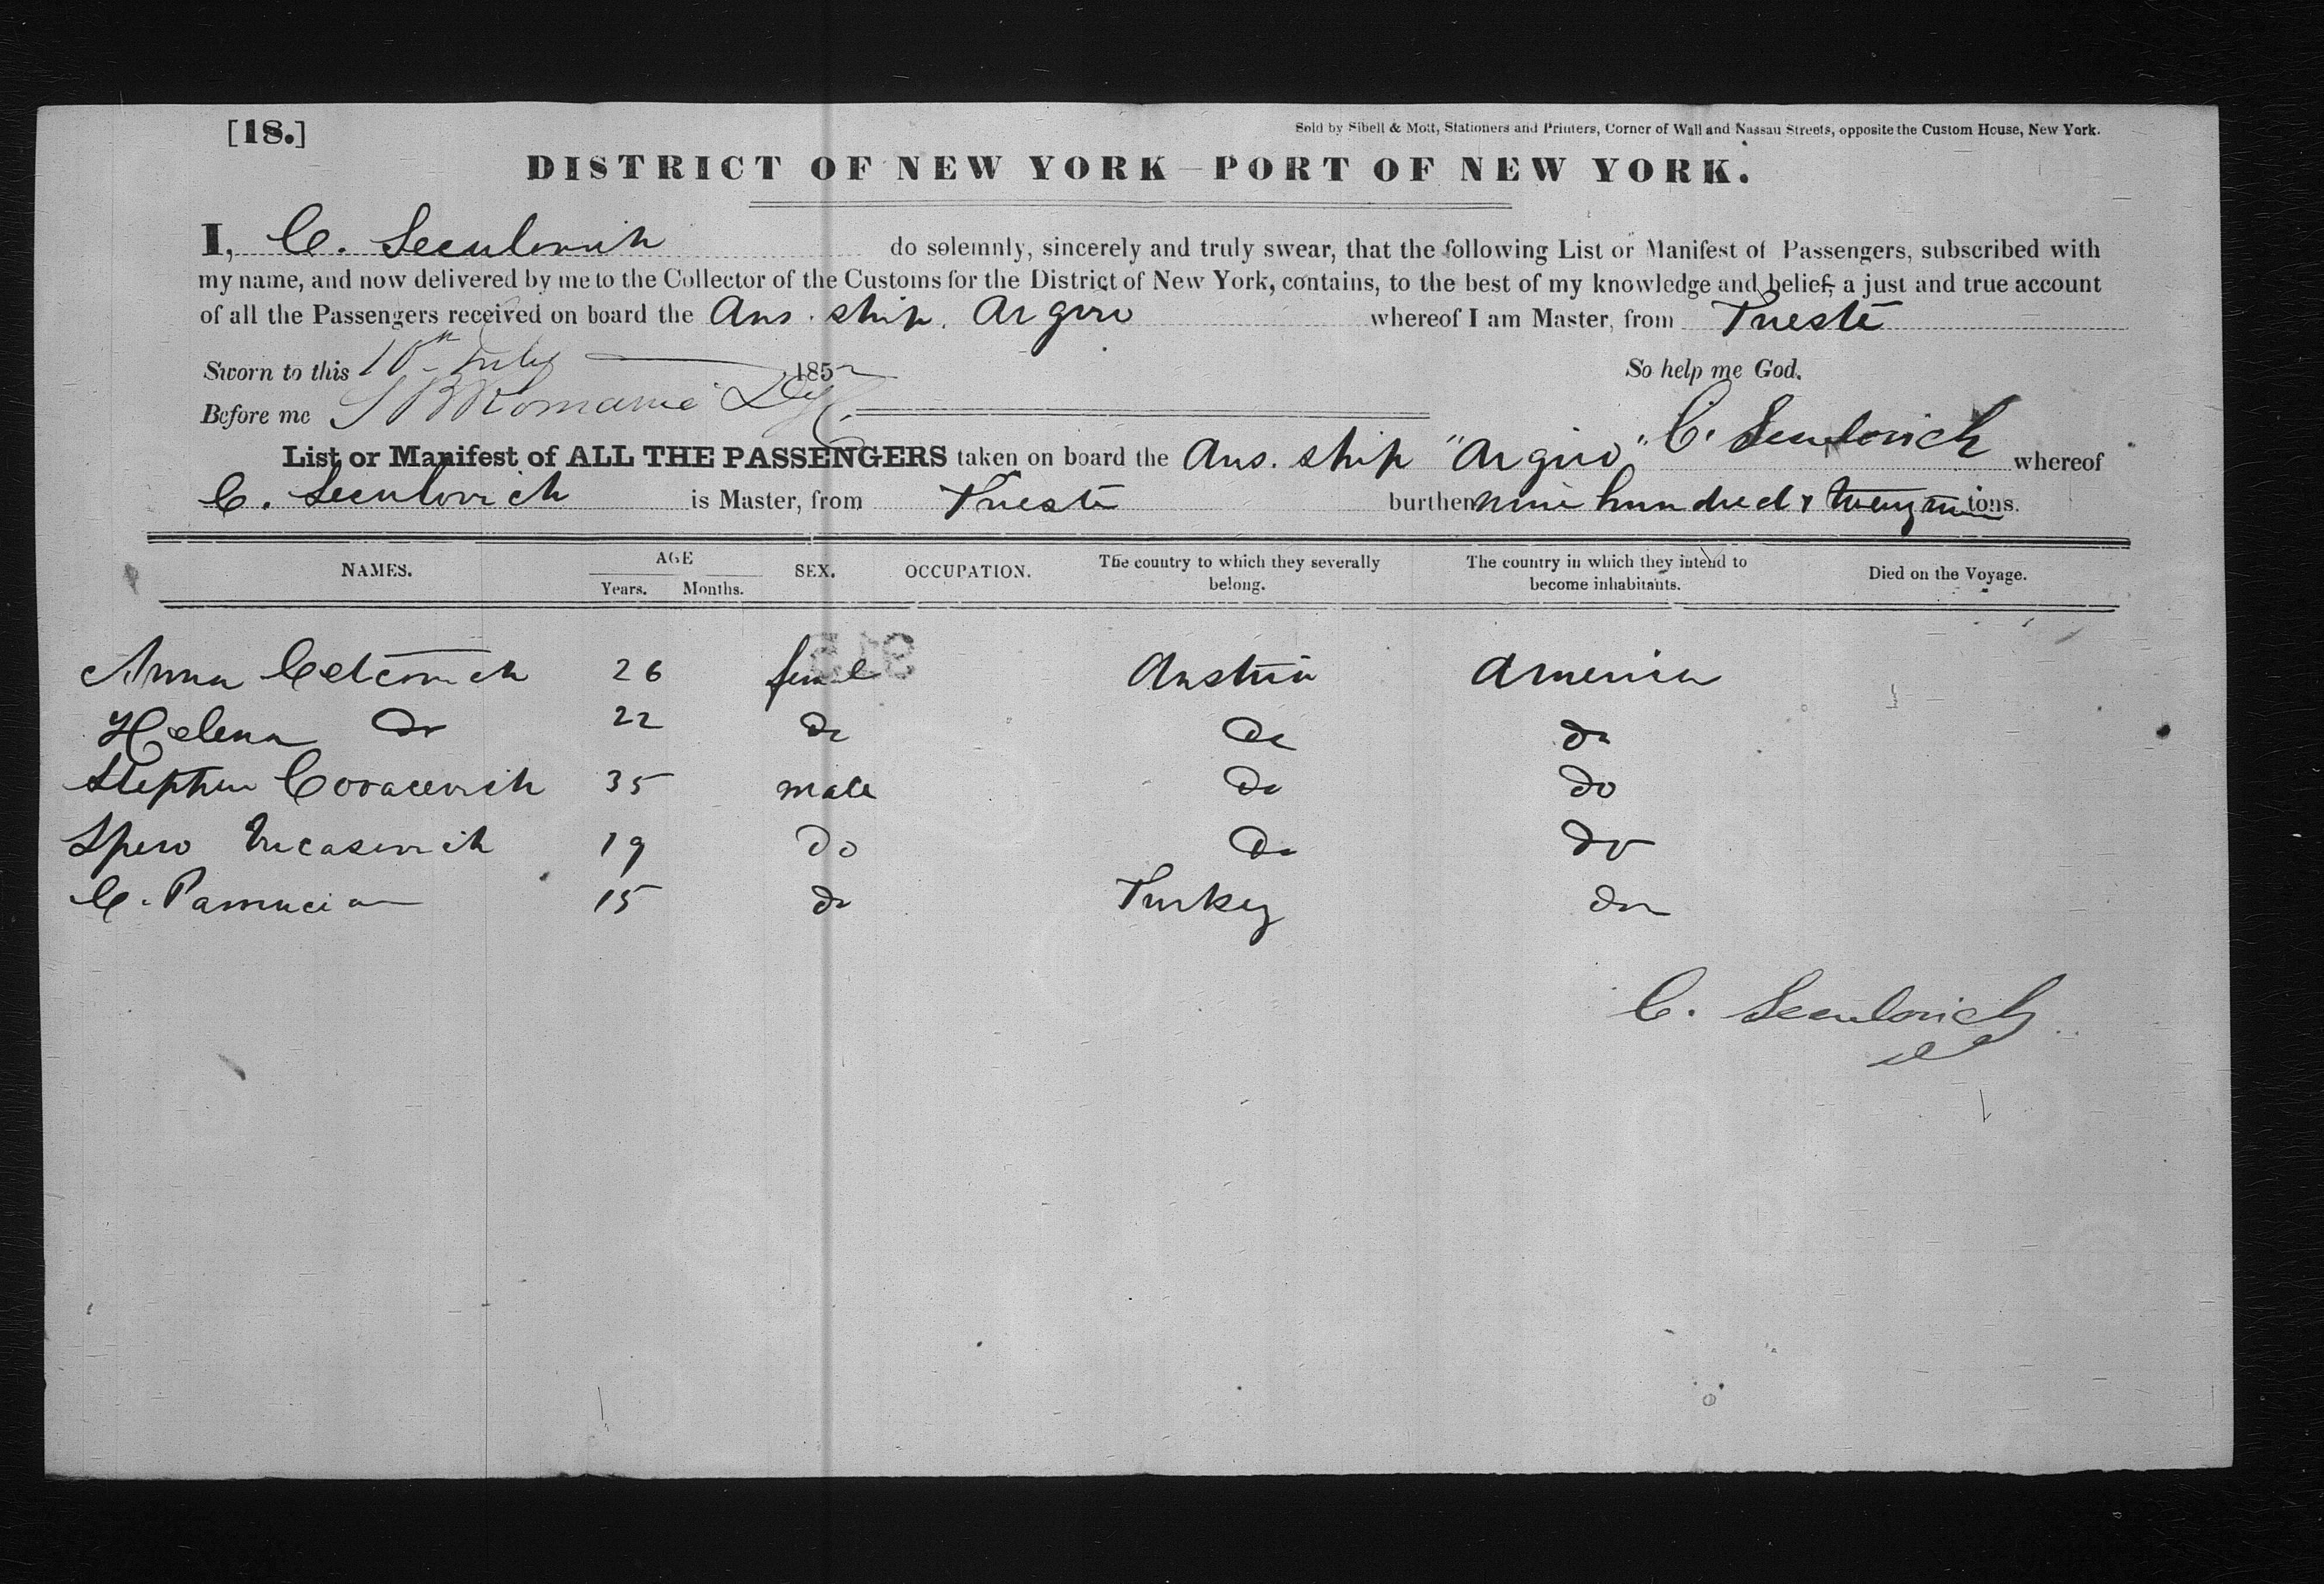 [18.]
Sold by Sibell & Mott, Stationers and Printers, Corner of Wall and Nassau Streets, opposite the Custom House, New York.
DISTRICT OF NEW YORK—PORT OF NEW YORK.
I, C. Seculovich do solemnly, sincerely and truly swear, that the following List or Manifest of Passengers, subscribed with
my name, and now delivered by me to the Collector of the Customs for the District of New York, contains, to the best of my knowledge and belief, a just and true account
of all the Passengers received on board the Aus. ship. Argiro whereof I am Master, from Trieste
Sworn to this 10th July 1852 So help me God.
Before me S B Romaine
C. Seculovich
List or Manifest of ALL THE PASSENGERS taken on board the Aus. ship "Argiro" whereof
C. Seculovich is Master, from Trieste burthen nine hundred & tons.
NAMES. AGE SEX. OCCUPATION. The country to which they severally belong. The country in which they intend to become inhabitants. Died on the Voyage.
Years. Months.
Anna 26 femal Austria America
Helena do 22 do do do
Stephen Covacevich 35 male do do
Spero Vucasovich 19 do do do
C. 15 do Turkey do
C. Seculovich